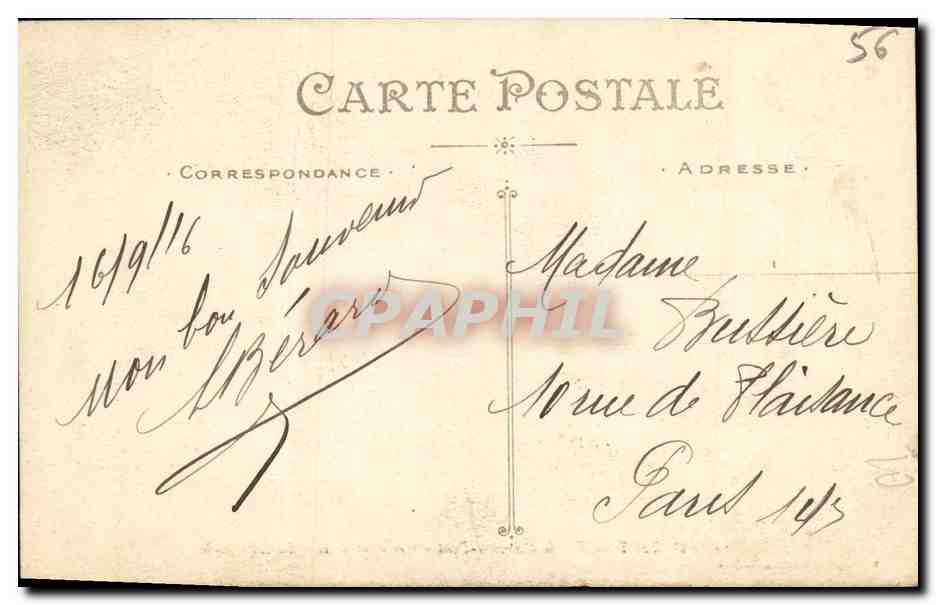 56
CARTE POSTALE
· CORRESPONDANCE ·
· ADRESSE ·
16/9/16
Mon bon souvenir
ABérard
Madame
Bussière
10 rue de Plaisance
Paris 14
CPAPHIL